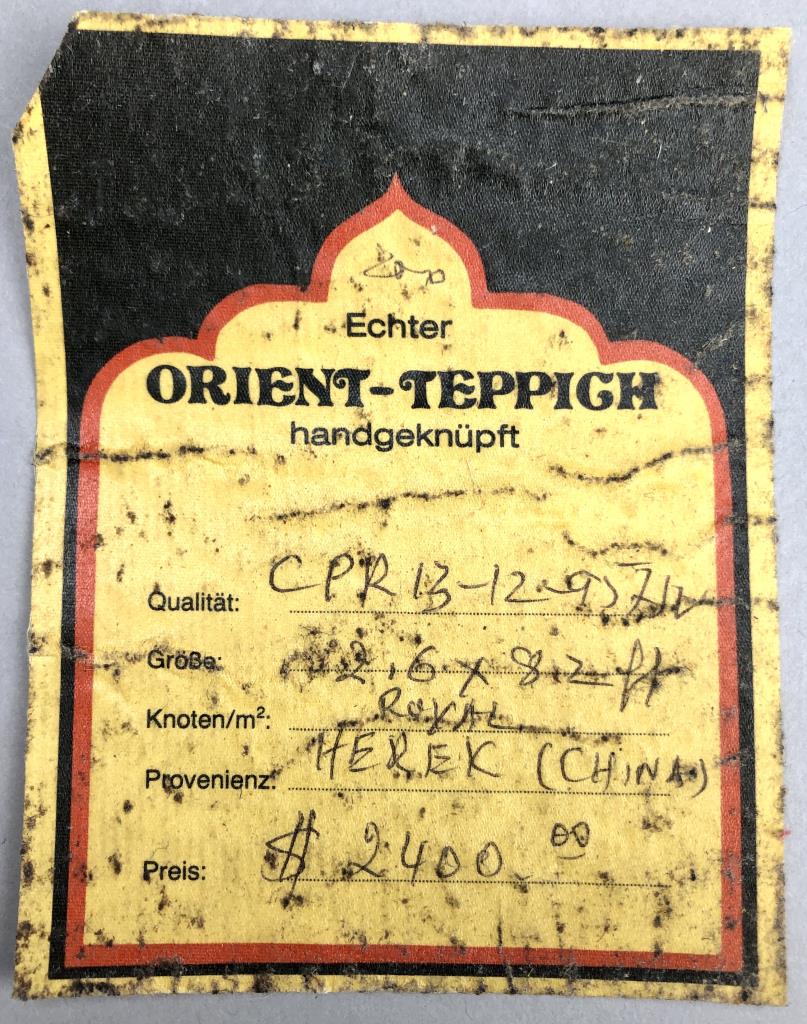 Echter
ORIENT-TEPPICH
handgeknüpft
Qualität: CPR 13-12-95
Größe: 2.6 x 8.2 ft
Knoten/m²: ROYAL
Provenienz: HEREK (CHINA)
Preis: $ 2400.00